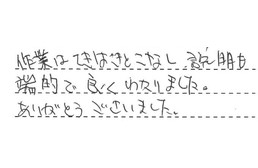 作業はてきぱきとこなし 説明も
端的で良くわかりました。
ありがとうございました。